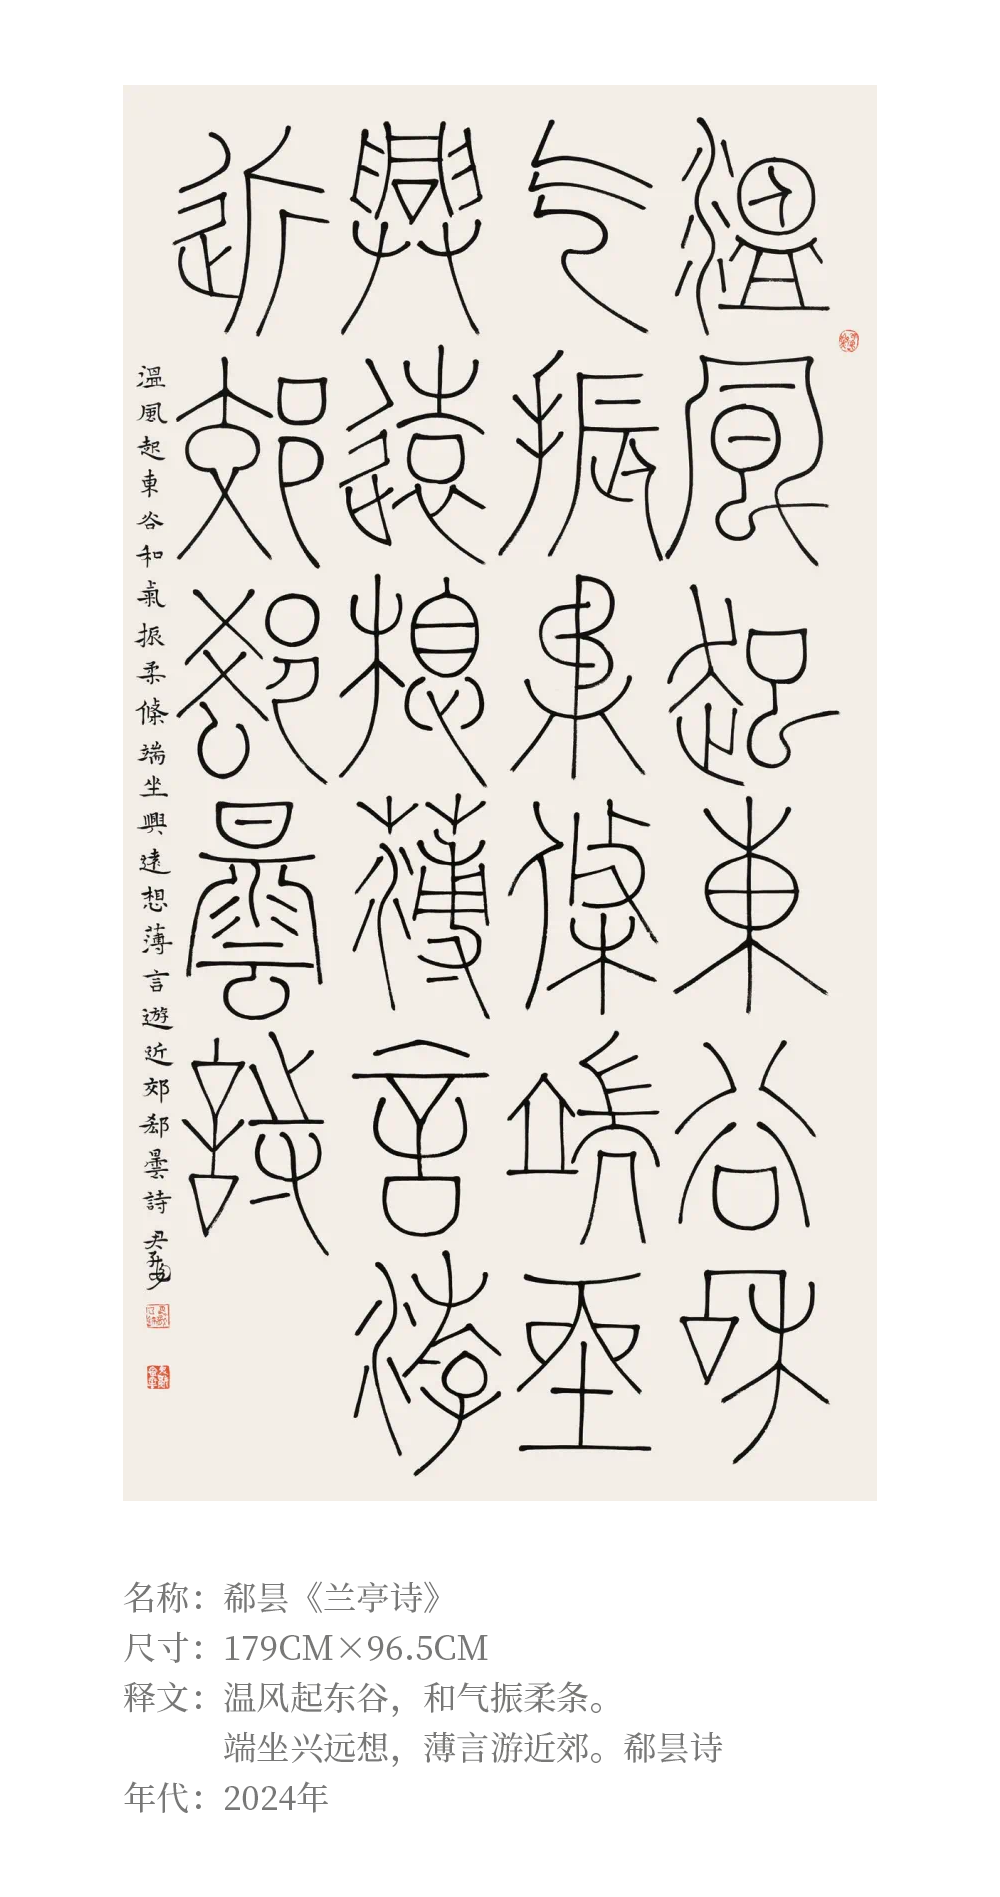 溫風起東谷和
气振柔條端坐
興遠想薄言游
近郊郗曇詩
溫風起東谷和氣振柔條端坐興遠想薄言遊近郊郗曇詩
名称：郗昙《兰亭诗》
尺寸：179CM×96.5CM
释文：温风起东谷，和气振柔条。
端坐兴远想，薄言游近郊。郗昙诗
年代：2024年